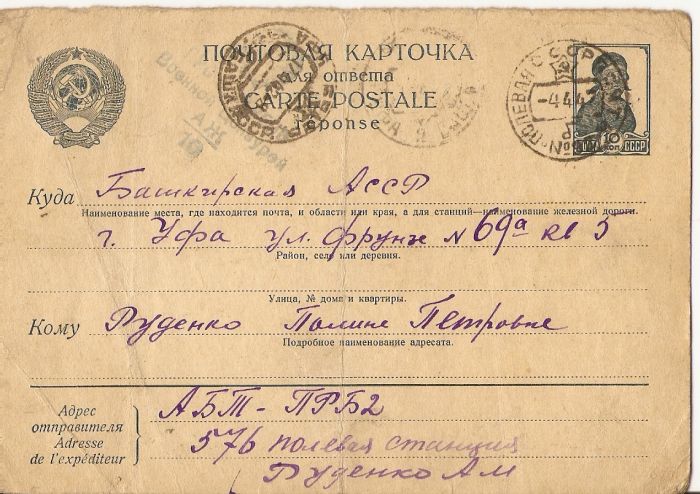 ПОЧТОВАЯ КАРТОЧКА
для ответа
CARTE POSTALE
réponse
10
КОП.
ПОЧТА СССР
ПОЛЕВАЯ
СССР
-4.4.4
Военной Цензурой
Куда Башкирская АССР
Наименование места, где находится почта, и области или края, а для станций—наименование железной дороги.
г. Уфа ул. Фрунзе N 69а кв 5
Район, село или деревня.
Улица, № дома и квартиры.
Кому Руденко Полине Петровне
Подробное наименование адресата.
Адрес
отправителя
Adresse
de l'expéditeur
АБТ-ПРБ2
576 полевая станция
Руденко АМ